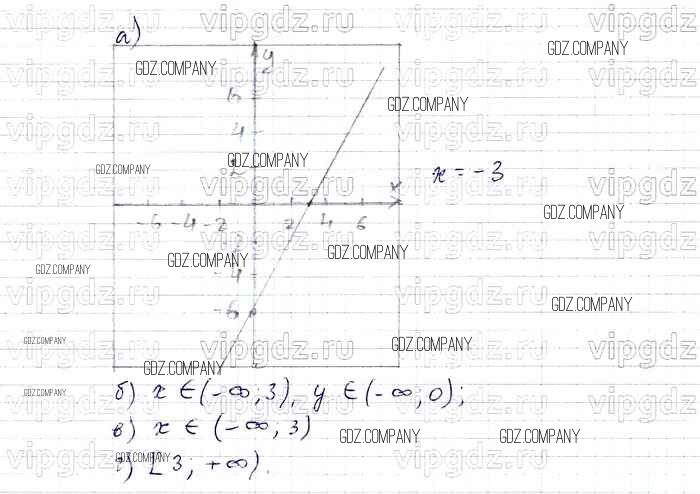 а)
y
6
4
2
x
-6 -4 -2 2 4 6
-2
-4
-6
x = -3
б) x ∈ (-∞; 3), y ∈ (-∞, 0);
в) x ∈ (-∞, 3)
г) [3; +∞).
vipgdz.ru
GDZ.COMPANY